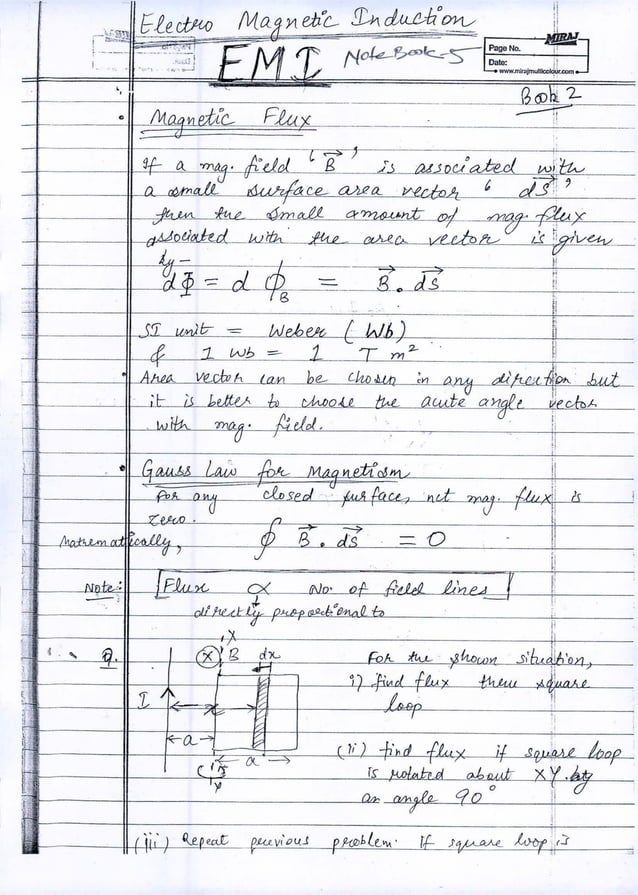 Electro Magnetic Induction
EMI Note Book-5
MIRAJ
Page No.
Date:
www.mirajmulticolour.com
Book 2
• Magnetic Flux
If a mag. field ‘ B⃗ ’ is associated with
a small surface area vector ‘ dS⃗ ’
then the small amount of mag. flux
associated with the area vector is given
by –
dΦ = d ϕ_B = B⃗ . ds⃗
SI unit = Weber ( Wb)
& 1 Wb = 1 T m²
• Area vector can be chosen in any direction but
it is better to choose the acute angle vector
with mag. field.
• Gauss Law for Magnetism
For any closed surface, net mag. flux is
zero.
Mathematically, ∮ B⃗ . ds⃗ = 0
Note: Flux ∝ No. of field lines
directly proportional to
Q. For the shown situation,
i) find flux threw square
loop
X
B dx
I
x
a
a
Y
(ii) find flux if square loop
is rotated about XY by
an angle 90°
(iii) Repeat previous problem. If square loop is